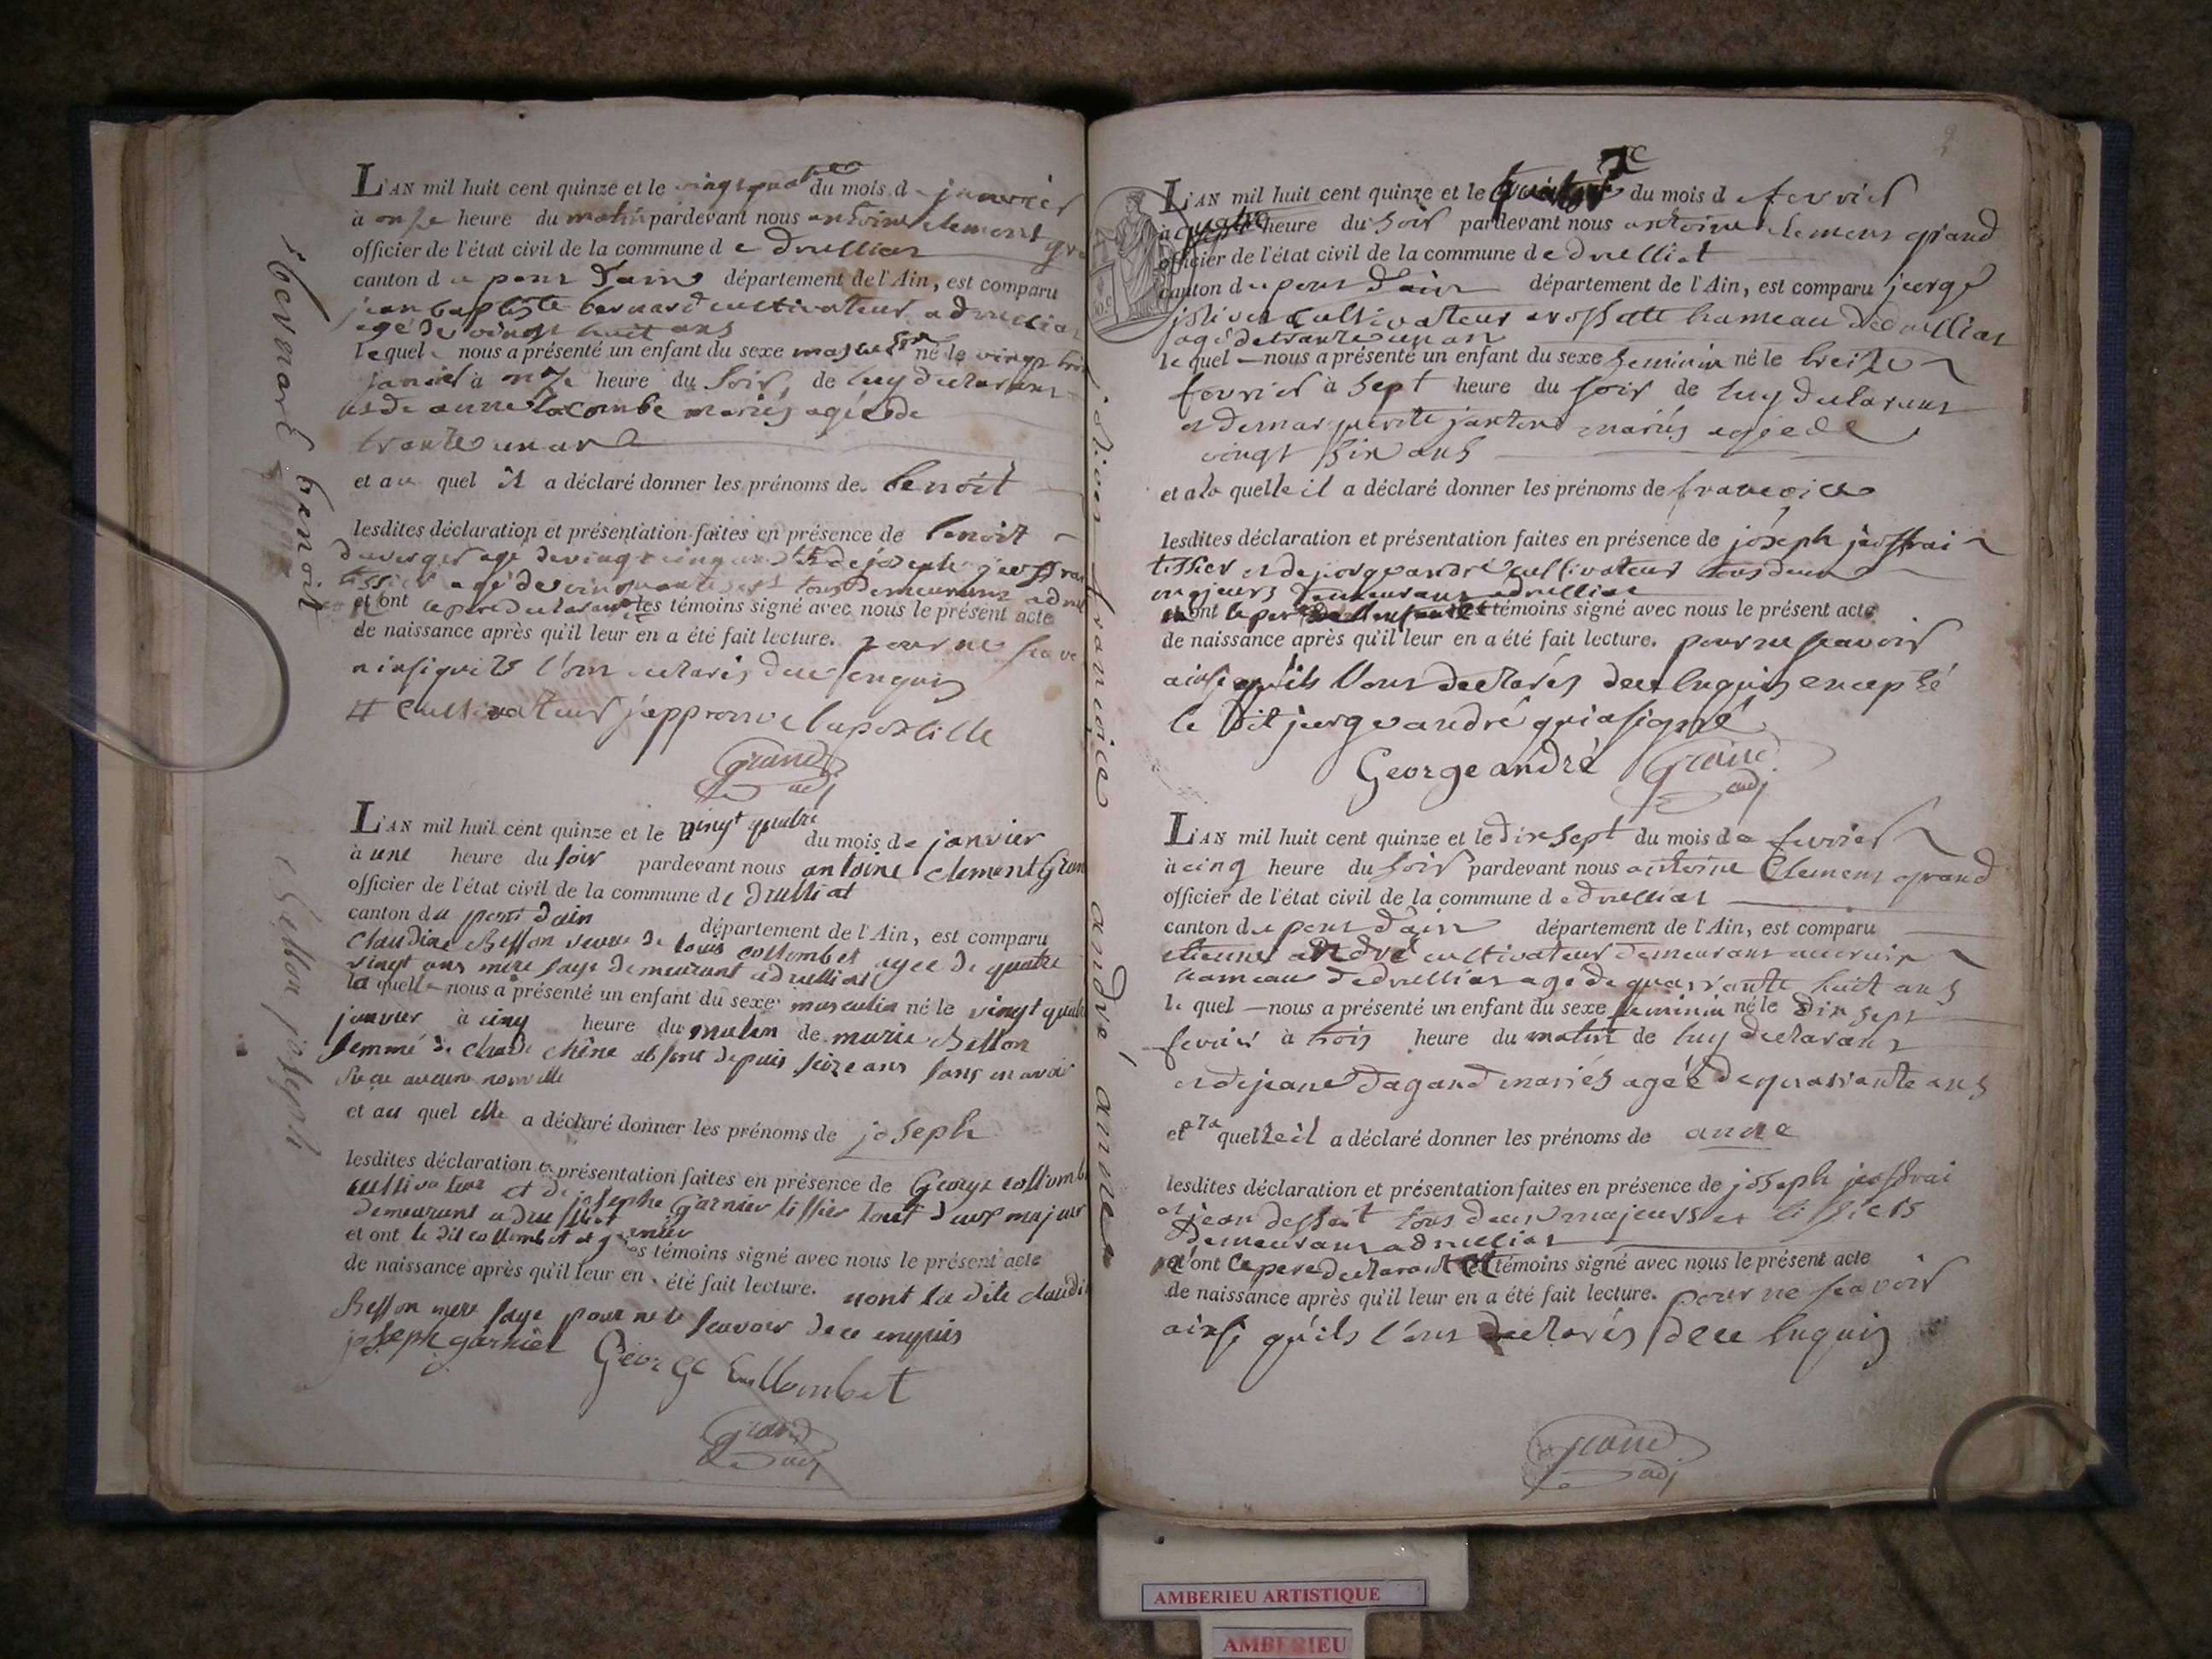 bernard benoit
L'AN mil huit cent quinze et le vingt quatre du mois de janvier
à onze heure du matin pardevant nous antoine clement gra
officier de l'état civil de la commune de druilliat
canton du pont d'ain département de l'Ain, est comparu
jean baptiste bernard cultivateur a druillia
agé de vingt huit ans
lequel nous a présenté un enfant du sexe masculin né le vingt troi
janvier à onze heure du soir, de luy declarant
et de anne lacombe mariés agée de
trante un an
et au quel il a déclaré donner les prénoms de benoit
lesdites déclaration et présentation faites en présence de benoit
duverger agé de vingt cinq ans # de joseph jeoffrai
tissier agé de cinquante sept tous demeurans a dru
et ont le pere declarant et les témoins signé avec nous le présent acte
de naissance après qu'il leur en a été fait lecture. pour ne scavo
ainsi quils l'ont declarés de ce enquis
# cultivateur j'approuve l'apostille
Grand
adj
Besson joseph
L'AN mil huit cent quinze et le vingt quatre du mois de janvier
à une heure du soir pardevant nous antoine clement Gran
officier de l'état civil de la commune de druilliat
canton du pont d'ain département de l'Ain, est comparu
Claudine Besson veuve de louis collombet agée de quatre
vingt ans mere sage demeurant a druilliat
la quelle nous a présenté un enfant du sexe masculin né le vingt quatr
janvier à cinq heure du matin de marie Besson
femme de Claude chêne absent depuis seize ans sans en avoir
reçu aucune nouvelle
et au quel elle a déclaré donner les prénoms de joseph
lesdites déclaration et présentation faites en présence de George collomb
cultivateur et de josephe Garnier tissier tout deux majeur
demeurant a druilliat
et ont le dit collombet et garnier les témoins signé avec nous le présent acte
de naissance après qu'il leur en a été fait lecture. nont la dite claudi
Besson mere sage pour ne le scavoir de ce enquis
joseph garnier George Collombet
Grand
adj
jolivet françoise
andré anne
2
L'AN mil huit cent quinze et le du mois de fevrier
à quatre heure du soir pardevant nous antoine clement grand
officier de l'état civil de la commune de druilliat
canton du pont d'ain département de l'Ain, est comparu jeorge
jolivet cultivateur a rossette hameau de druilliat
agé de trante un an
le quel nous a présenté un enfant du sexe feminin né le treize
fevrier à sept heure du soir de luy declarant
et de marguerite jantond mariés agée de
vingt six ans
et a la quelle il a déclaré donner les prénoms de francoise
lesdites déclaration et présentation faites en présence de joseph jeoffrai
tissier et de jorge andré cultivateur tous deux
majeurs demeurans a druilliat
et ont le pere de l'enfant et témoins signé avec nous le présent acte
de naissance après qu'il leur en a été fait lecture. pour ne scavoir
ainsi qu'ils l'ont declarés de ce enquis excepté
le dit jeorge andré qui a signé
George andré Grand
adj
L'AN mil huit cent quinze et le dix sept du mois de fevrier
à cinq heure du soir pardevant nous antoine Clement grand
officier de l'état civil de la commune de druilliat
canton du pont d'ain département de l'Ain, est comparu
etienne andré cultivateur demeurant au
hameau de druilliat agé de quarante huit ans
le quel nous a présenté un enfant du sexe feminin né le dix sept
fevrier à trois heure du matin de luy declarant
et de jeane dagand mariés agée de quarante ans
et a la quelle il a déclaré donner les prénoms de anne
lesdites déclaration et présentation faites en présence de joseph jeoffrai
et jean tous deux majeurs et tissiers
demeurans a druilliat
n'ont le pere declarant et témoins signé avec nous le présent acte
de naissance après qu'il leur en a été fait lecture. pour ne scavoir
ainsi qu'ils l'ont declarés de ce enquis
Grand
adj
AMBERIEU ARTISTIQUE
AMBERIEU